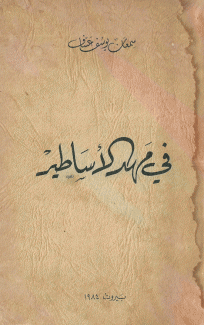 سمعان يوسف عوض
في مهد الأساطير
بيروت ١٩٨٤